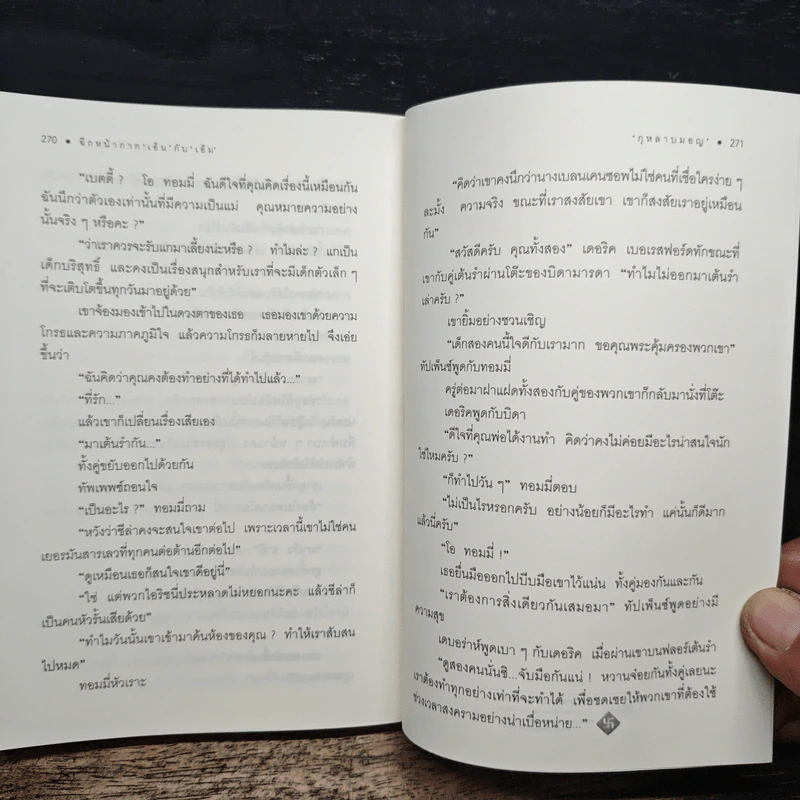 270 ● ฉีกหน้ากาก'เอ็น'กับ'เอ็ม'
"เบตตี้ ? โอ ทอมมี่ ฉันดีใจที่คุณคิดเรื่องนี้เหมือนกัน
ฉันนึกว่าตัวเองเท่านั้นที่มีความเป็นแม่ คุณหมายความอย่าง
นั้นจริง ๆ หรือคะ ?"
"ว่าเราควรจะรับแกมาเลี้ยงน่ะหรือ ? ทำไมล่ะ ? แกเป็น
เด็กบริสุทธิ์ และคงเป็นเรื่องสนุกสำหรับเราที่จะมีเด็กตัวเล็ก ๆ
ที่จะเติบโตขึ้นทุกวันมาอยู่ด้วย"
เขาจ้องมองเข้าไปในดวงตาของเธอ เธอมองเขาด้วยความ
โกรธและความภาคภูมิใจ แล้วความโกรธก็มลายหายไป จึงเอ่ย
ขึ้นว่า
"ฉันคิดว่าคุณคงต้องทำอย่างที่ได้ทำไปแล้ว..."
"ที่รัก..."
แล้วเขาก็เปลี่ยนเรื่องเสียเอง
"มาเต้นรำกัน..."
ทั้งคู่ขยับออกไปด้วยกัน
ทัพเพพซ์ถอนใจ
"เป็นอะไร ?" ทอมมี่ถาม
"หวังว่าชีล่าคงจะสนใจเขาต่อไป เพราะเวลานี้เขาไม่ใช่คน
เยอรมันสารเลวที่ทุกคนต่อต้านอีกต่อไป"
"ดูเหมือนเธอก็สนใจเขาดีอยู่นี่"
"ใช่ แต่พวกไอริชนี่ประหลาดไม่หยอกนะคะ แล้วชีล่าก็
เป็นคนหัวรั้นเสียด้วย"
"ทำไมวันนั้นเขาเข้ามาค้นห้องของคุณ ? ทำให้เราสับสน
ไปหมด"
ทอมมี่หัวเราะ
'กุหลาบมอญ' ● 271
"คิดว่าเขาคงนึกว่านางเบลนเคนซอพไม่ใช่คนที่เชื่อใครง่าย ๆ
ละมั้ง ความจริง ขณะที่เราสงสัยเขา เขาก็สงสัยเราอยู่เหมือน
กัน"
"สวัสดีครับ คุณทั้งสอง" เดอริค เบอเรสฟอร์ดทักขณะที่
เขากับคู่เต้นรำผ่านโต๊ะของบิดามารดา "ทำไมไม่ออกมาเต้นรำ
เล่าครับ ?"
เขายิ้มอย่างชวนเชิญ
"เด็กสองคนนี้ใจดีกับเรามาก ขอคุณพระคุ้มครองพวกเขา"
ทัปเพ็นซ์พูดกับทอมมี่
ครู่ต่อมาฝาแฝดทั้งสองกับคู่ของพวกเขาก็กลับมานั่งที่โต๊ะ
เดอริคพูดกับบิดา
"ดีใจที่คุณพ่อได้งานทำ คิดว่าคงไม่ค่อยมีอะไรน่าสนใจนัก
ใช่ไหมครับ ?"
"ก็ทำไปวัน ๆ" ทอมมี่ตอบ
"ไม่เป็นไรหรอกครับ อย่างน้อยก็มีอะไรทำ แค่นั้นก็ดีมาก
แล้วนี่ครับ"
"โอ ทอมมี่ !"
เธอยื่นมือออกไปบีบมือเขาไว้แน่น ทั้งคู่มองกันและกัน
"เราต้องการสิ่งเดียวกันเสมอมา" ทัปเพ็นซ์พูดอย่างมี
ความสุข
เดบอร่าห์พูดเบา ๆ กับเดอริค เมื่อผ่านเขาบนฟลอร์เต้นรำ
"ดูสองคนนั่นซิ...จับมือกันแน่ ! หวานจ๋อยกันทั้งคู่เลยนะ
เราต้องทำทุกอย่างเท่าที่จะทำได้ เพื่อชดเชยให้พวกเขาที่ต้องใช้
ช่วงเวลาสงครามอย่างน่าเบื่อหน่าย..."